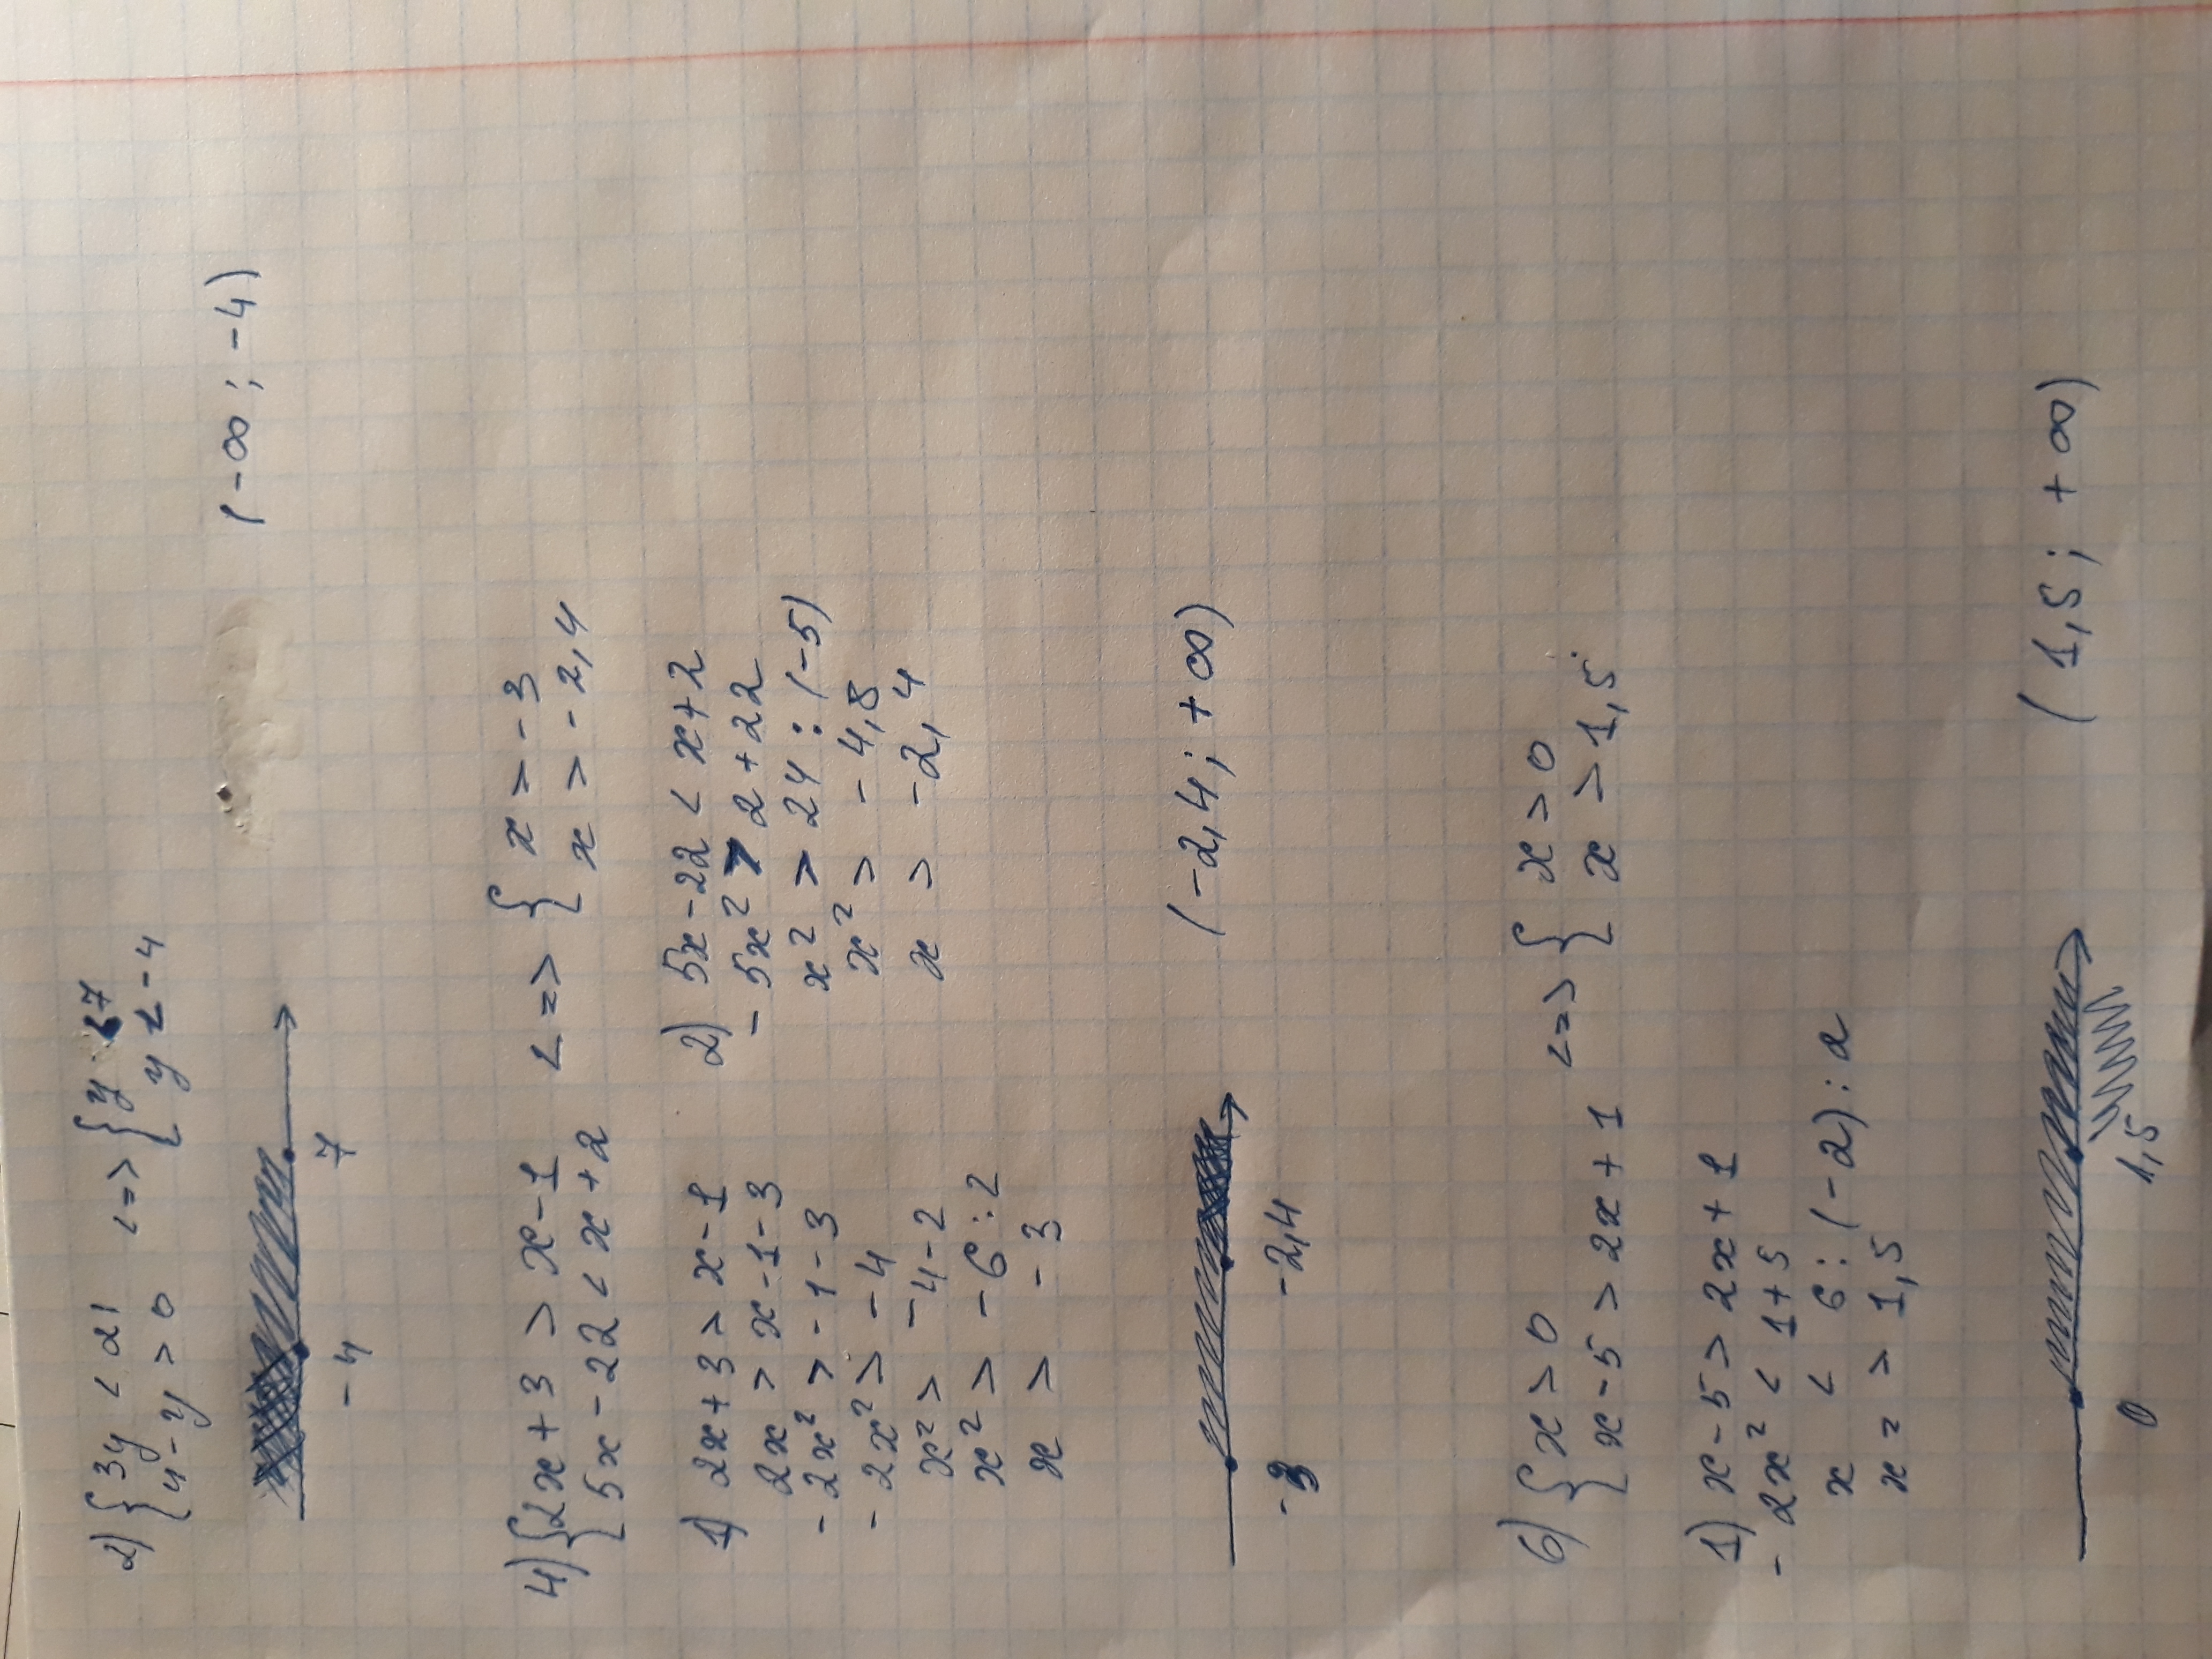 2) { 3y < 21 <=> { y < 7
4 - y > 0 y < -4
-4 7 (-∞; -4)
4) { 2x + 3 > x - 1 <=> { x > -3
5x - 22 < x + 2 x > -2,4
1) 2x + 3 > x - 1
2x > x - 1 - 3
- 2x² > -1 - 3
- 2x² > -4
x² > -4 - 2
x² > -6 : 2
x > -3
2) 5x - 22 < x + 2
- 5x² > 2 + 22
x² > 24 : (-5)
x² > -4,8
x > -2,4
-3 -2,4 (-2,4; +∞)
6) { x > 0 <=> { x > 0
x - 5 > 2x + 1 x > 1,5
1) x - 5 > 2x + 1
- 2x² < 1 + 5
x < 6 : (-2) : 2
x = > 1,5
0 1,5 (1,5; +∞)